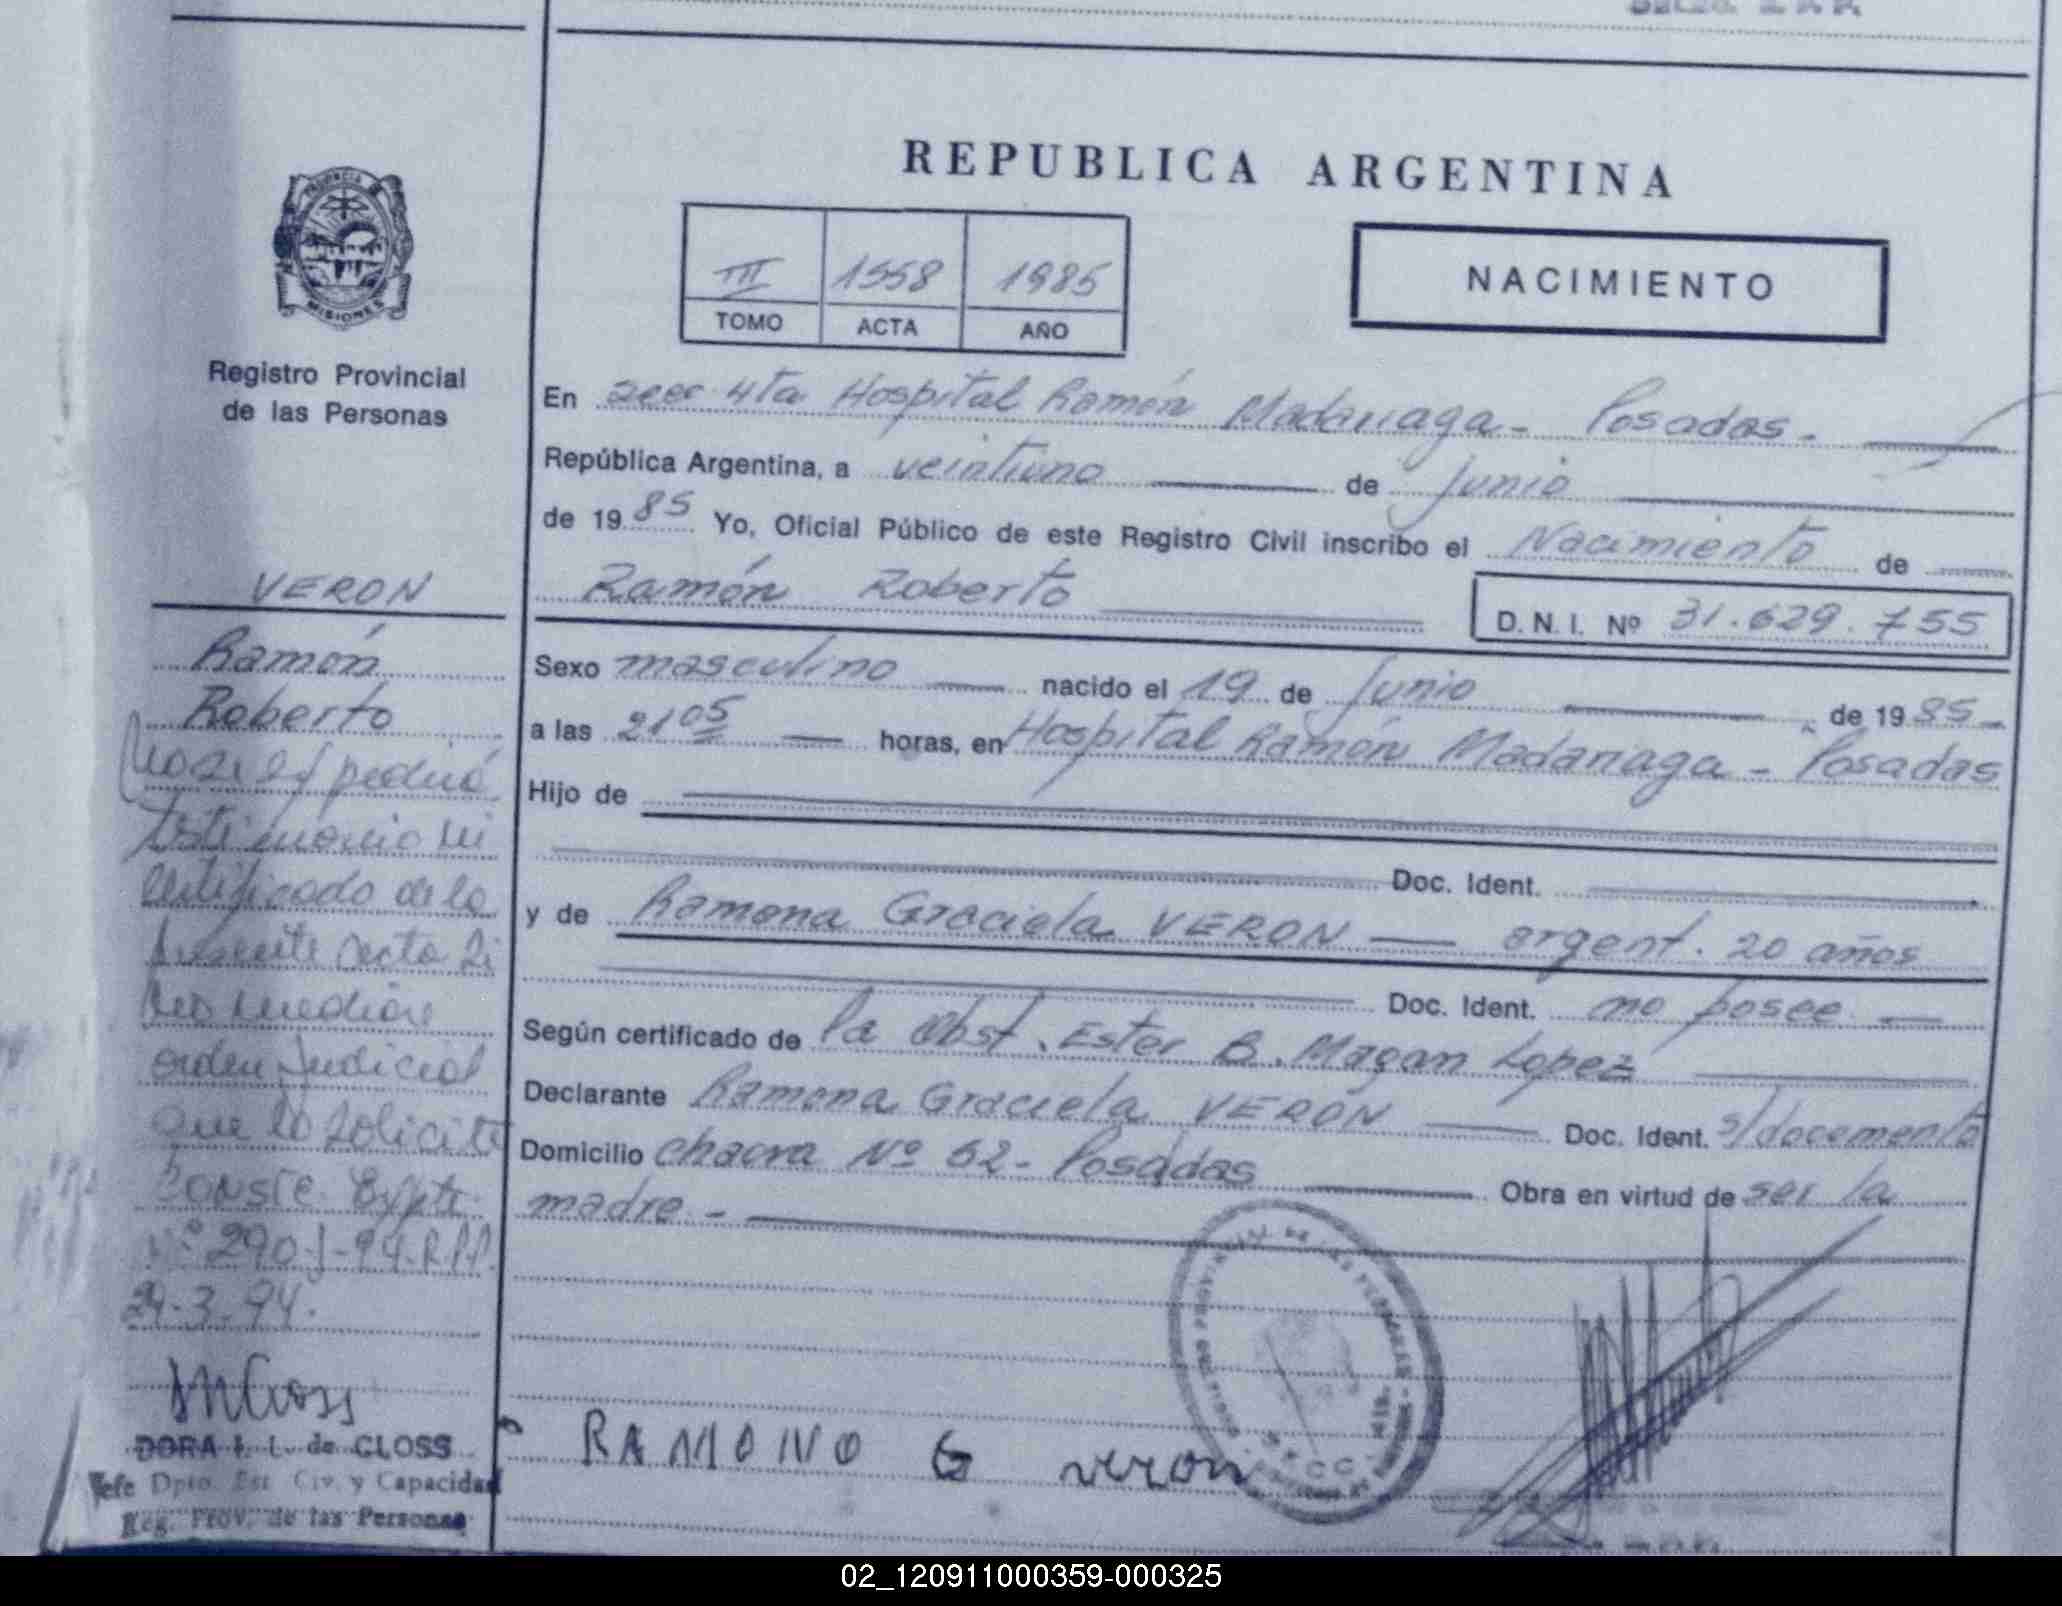 REPUBLICA ARGENTINA
PROVINCIA DE MISIONES
III 1558 1985
TOMO ACTA AÑO
NACIMIENTO
Registro Provincial
de las Personas
En secc 4ta Hospital Ramón Madariaga - Posadas -
República Argentina, a veintiuno de Junio
de 1985 Yo, Oficial Público de este Registro Civil inscribo el Nacimiento de
Ramón Roberto
D. N. I. Nº 31.629.755
Sexo masculino nacido el 19 de Junio de 1985
a las 21 05 horas, en Hospital Ramón Madariaga - Posadas
Hijo de
Doc. Ident.
y de Ramona Graciela VERON argent. 20 años
Doc. Ident. no posee
Según certificado de la Obst. Ester B. Magan Lopez
Declarante Ramona Graciela VERON Doc. Ident. s/documento
Domicilio chacra Nº 62 - Posadas Obra en virtud de ser la
madre -
RAMONO G veron
VERON
Ramón
Roberto
No se expedirá
testimonio ni
certificado de la
presente acta si
no mediare
orden judicial
que lo solicite
CONSTE Expte
Nº 290-J-94-R.P.P.
29-3-94.
DORA I. L. de CLOSS
Jefe Dpto. Est. Civ. y Capacidad
Reg. Prov. de las Personas
02_120911000359-000325